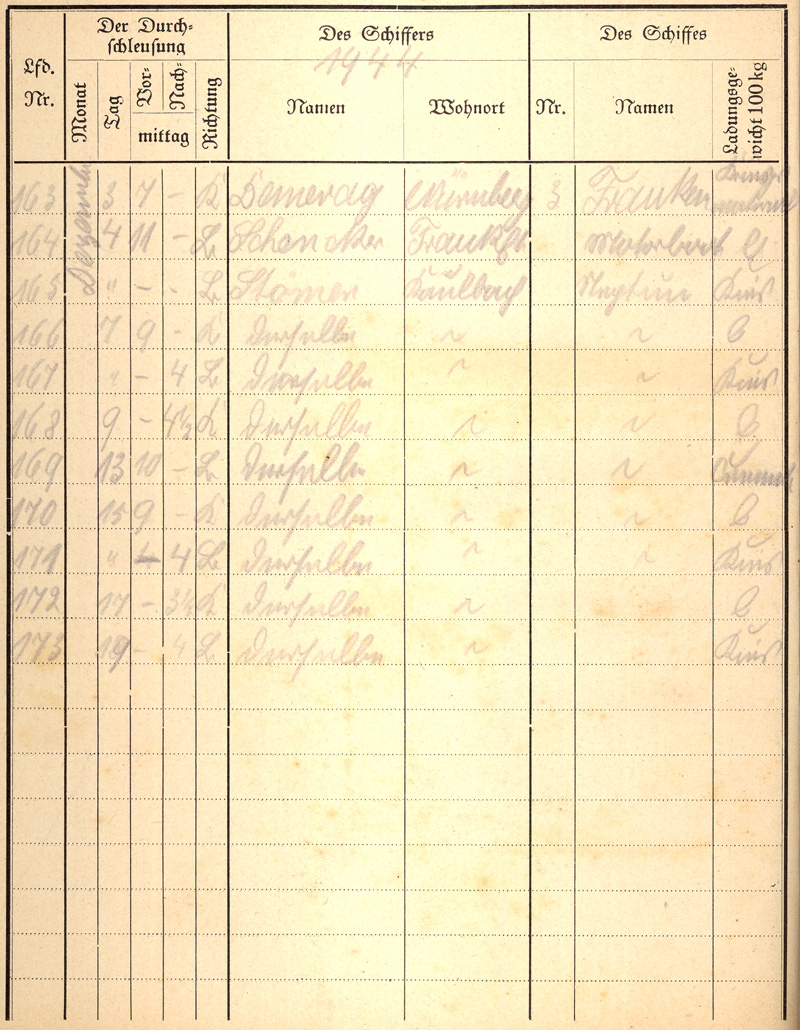 Lfd. Nr.
Der Durch-
schleusung
Monat
Tag
Vor-
Nach-
mittag
Richtung
Des Schiffers
1944
Namen
Wohnort
Des Schiffes
Nr.
Namen
Ladungsge-
wicht 100 kg
Dezember
163 3 7 - K Demerag Nürnberg 3 Franken
164 4 11 - L Schencker Frankft Motorboot
165 " - - L Stömer Kaulbach Neptun Kies
166 7 9 - K derselbe ~ ~
167 " - 4 L derselbe ~ ~ Kies
168 9 - 4½ K derselbe ~ ~
169 13 10 - L derselbe ~ ~
170 15 9 - K derselbe ~ ~
171 " - 4 L derselbe ~ ~ Kies
172 17 - 3½ K derselbe ~ ~
173 19 - 4 L derselbe ~ Kies